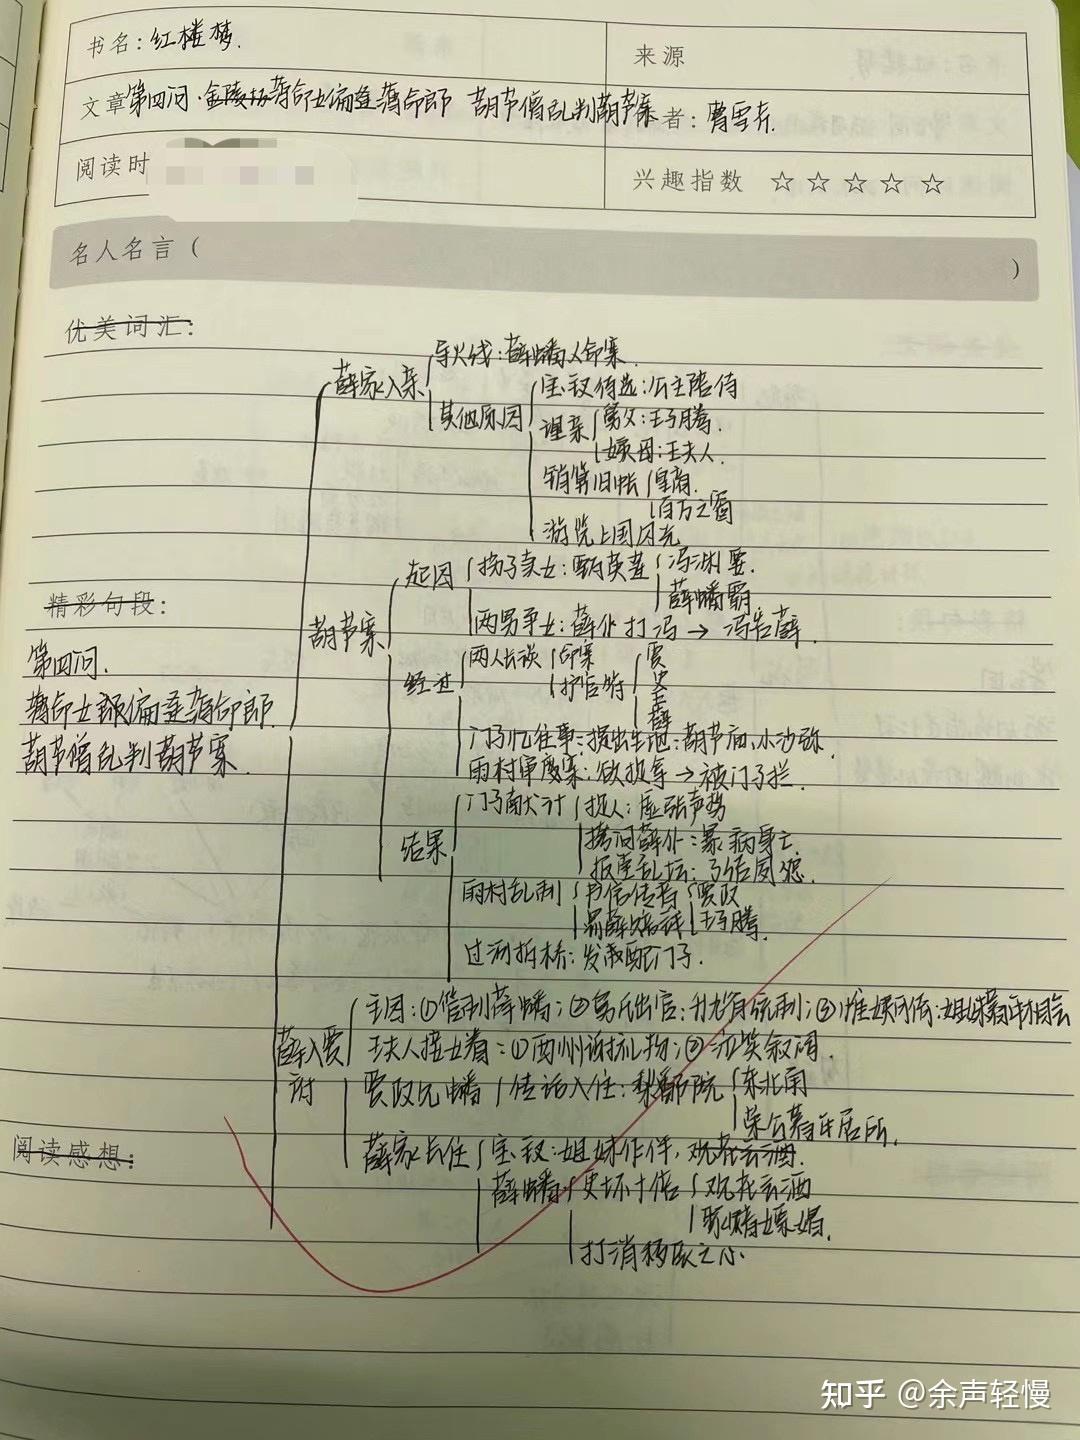 书名:红楼梦.
来源
文章第四回·金陵城薄命女偏逢薄命郎 葫芦僧乱判葫芦案者:曹雪芹.
阅读时
兴趣指数 ☆☆☆☆☆
名人名言( )
优美词汇:
薛家入京
导火线:薛蟠人命案.
其他原因
宝钗待选:公主陪侍
理亲
舅父:王子腾.
姨母:王夫人.
销算旧帐
皇商.
百万之富
游览上国风光
精彩句段:
第四回.
薄命女偏逢薄命郎.
葫芦僧乱判葫芦案.
葫芦案
起因
拐子卖女:甄英莲
冯渊要.
薛蟠霸
两男争女:薛仆打冯→冯告薛.
经过
两人长谈
命案
护官符
贾
史
王
薛
门子忆往事:提出生地:葫芦庙,小沙弥.
雨村审度案:欲捉拿→被门子拦.
结果
门子献计
捉人:虚张声势
拷问薛仆:暴病身亡.
扶鸾乱坛:了结夙怨.
雨村乱判
书信传音
贾政
王子腾.
罚薛赔钱
过河拆桥:发配门子.
薛入贾府
主因:①管制薛蟠;②舅氏出官:升九省统制;③惟姨可依:姐妹暮年相会
王夫人接女眷:①酬谢礼物;②泣笑叙阔.
贾政见蟠
传话入住:梨香院
东北角
荣公暮年居所.
薛家长住
宝钗:姐妹作伴,观花云酒.
薛蟠
更坏十倍
观花云酒
聚赌嫖娼.
打消移居之心.
阅读感想:
知乎 @余声轻慢